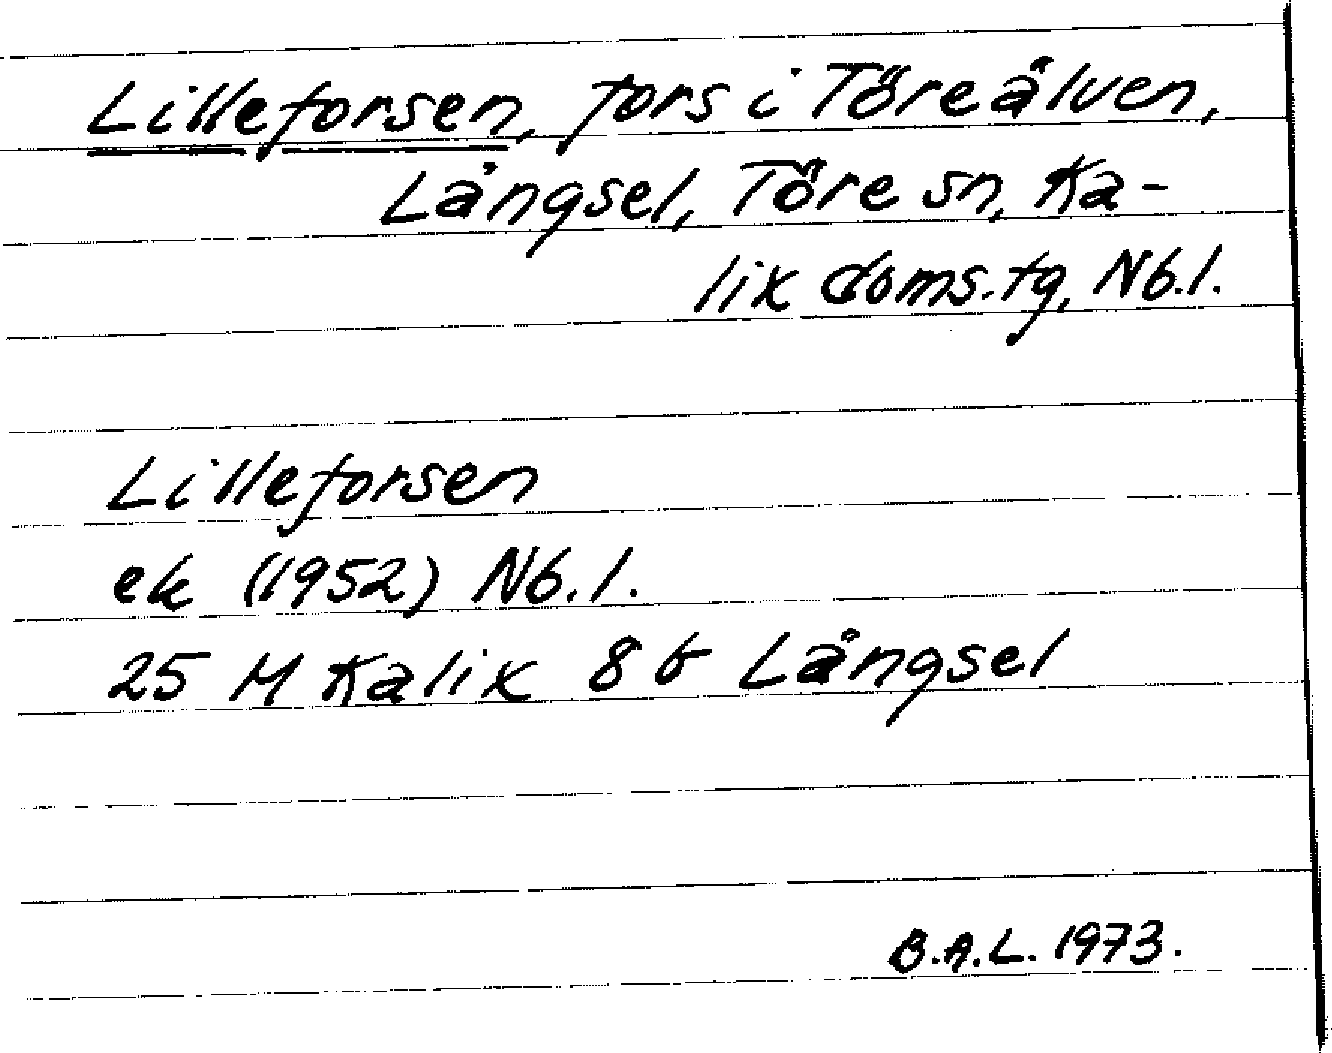 Lilleforsen, fors i Töreälven,
Långsel, Töre sn, Ka-
lix doms.tg, Nb.l.
Lilleforsen
ek (1952) Nb.l.
25 M Kalix 8 b Långsel
B.A.L. 1973.